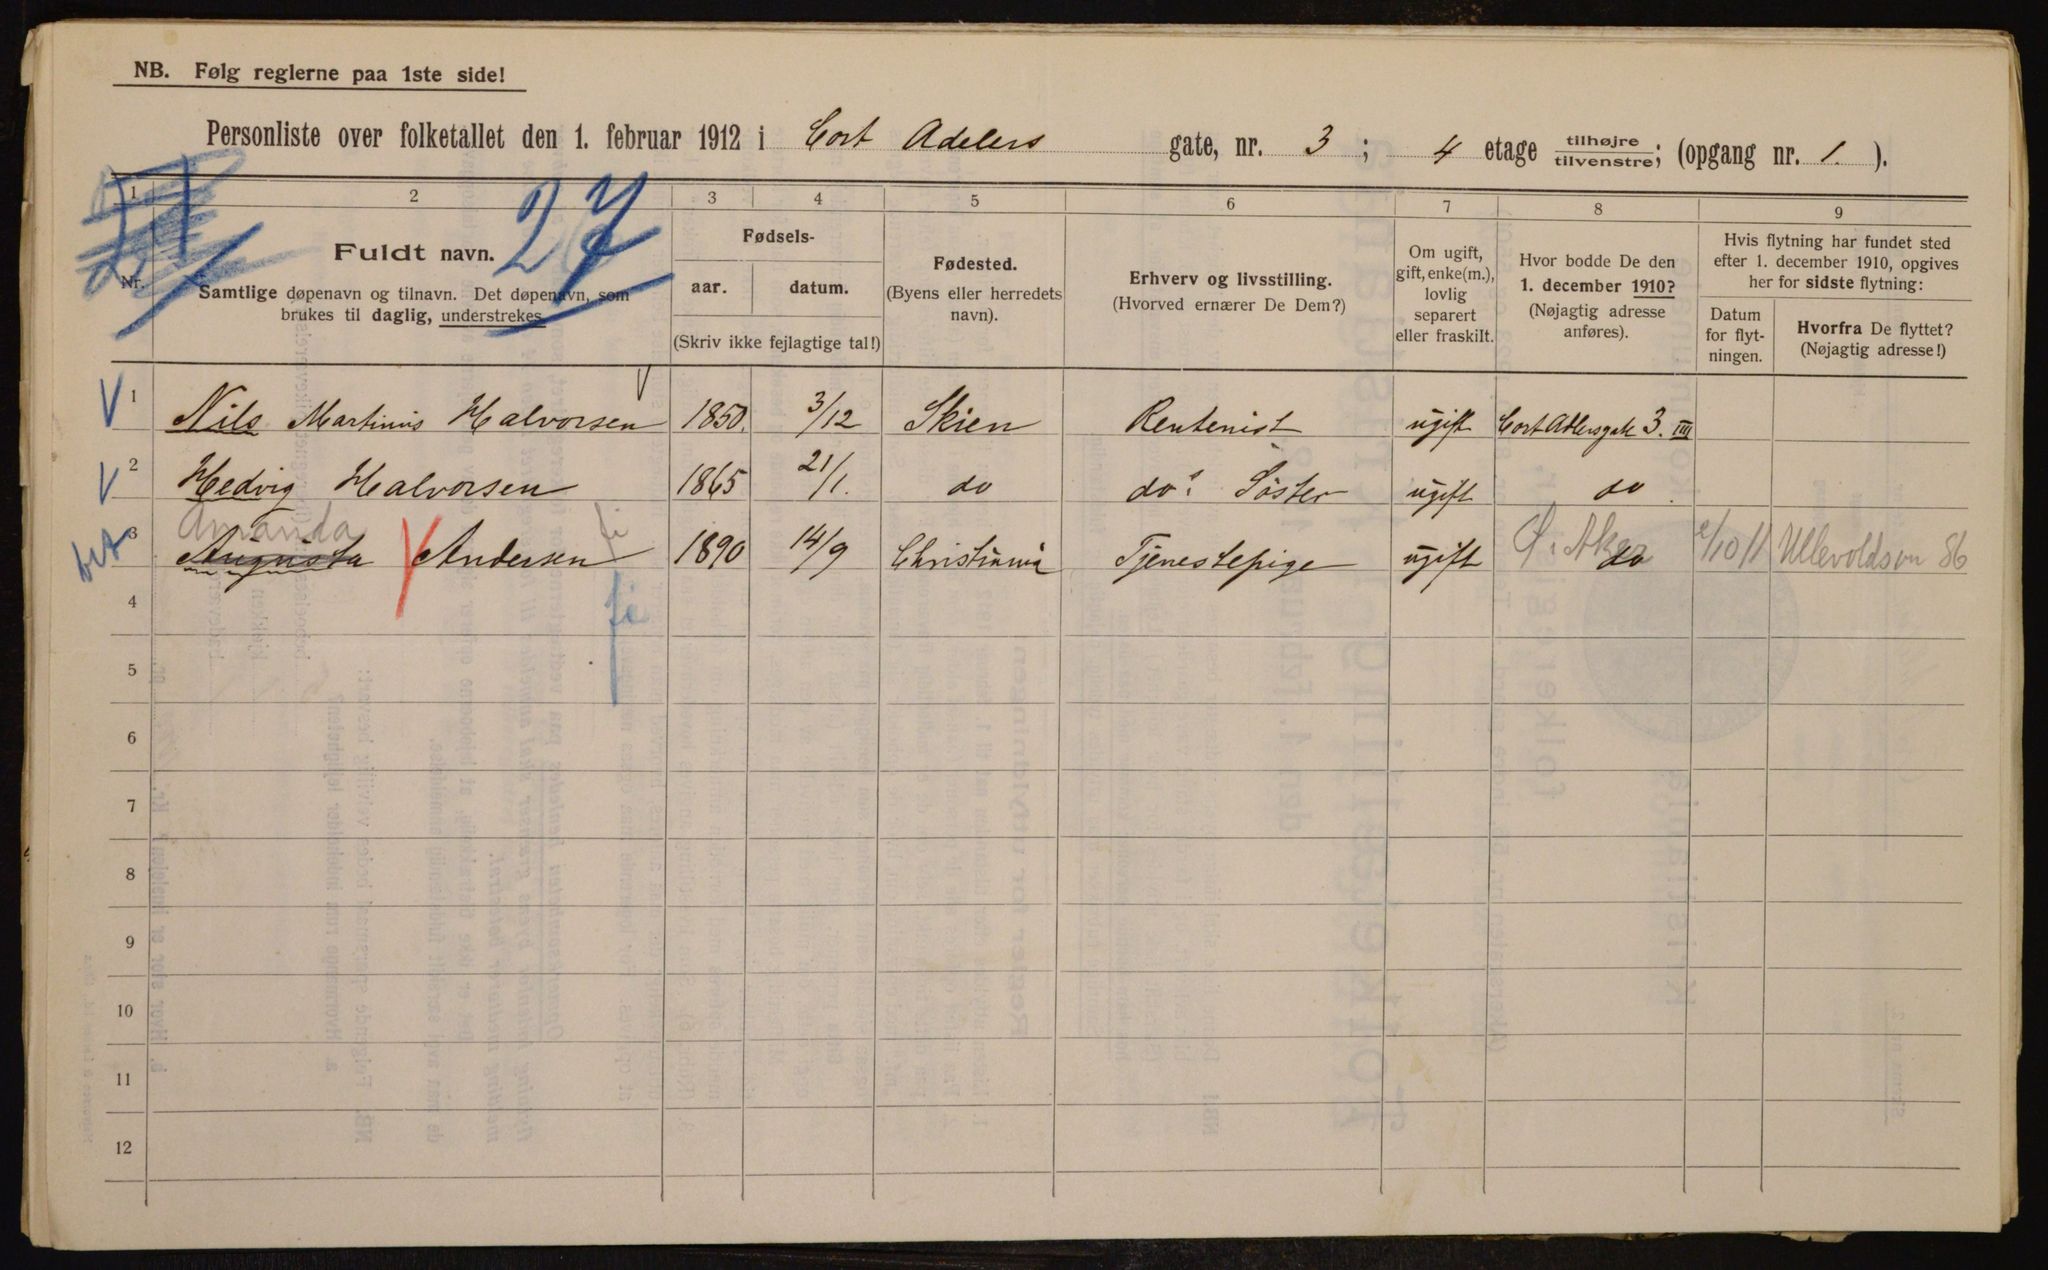 NB. Følg reglerne paa 1ste side!
Personliste over folketallet den 1. februar 1912 i Cort Adelers gate, nr. 3; 4 etage tilhøjre/tilvenstre; (opgang nr. 1.).
1 2 3 4 5 6 7 8 9
27
Nr.
Fuldt navn.
Samtlige døpenavn og tilnavn. Det døpenavn, som
brukes til daglig, understrekes.
Fødsels-
aar. datum.
(Skriv ikke fejlagtige tal!)
Fødested.
(Byens eller herredets
navn).
Erhverv og livsstilling.
(Hvorved ernærer De Dem?)
Om ugift,
gift, enke(m.),
lovlig
separert
eller fraskilt.
Hvor bodde De den
1. december 1910?
(Nøjagtig adresse
anføres).
Hvis flytning har fundet sted
efter 1. december 1910, opgives
her for sidste flytning:
Datum
for flyt-
ningen.
Hvorfra De flyttet?
(Nøjagtig adresse!)
V 1 Nils Martinus Halvorsen 1850. 3/12 Skien Rentenist ugift Cort Adlersgate 3. III
V 2 Hedvig Halvorsen 1865 21/1. do do's Søster ugift do
Amanda
3 Augusta Andersen 1890 14/9 Christiania Tjenestepige ugift Ø. Aker do /10 11 Ullevoldsvn 86
4
5
6
7
8
9
10
11
12